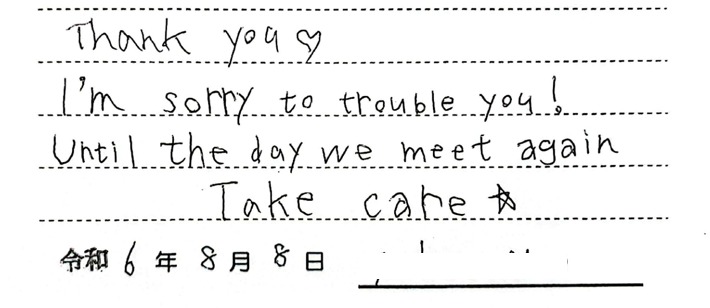 Thank you♡
I'm sorry to trouble you!
Until the day we meet again
Take care☆
令和6年8月8日